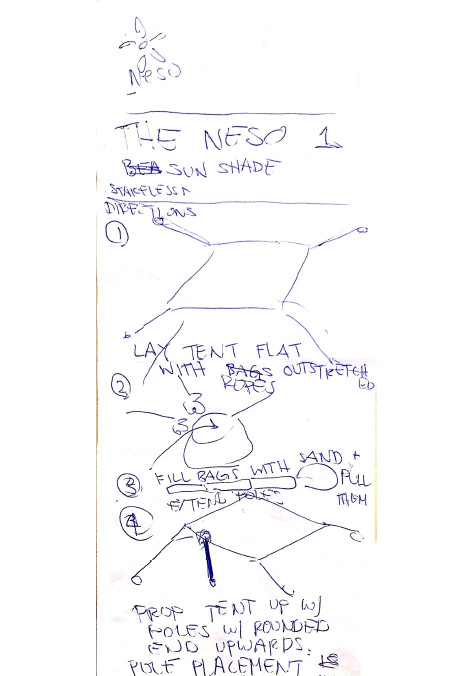 Neso
THE NESO 1
SUN SHADE
STAKELESS
DIRECTIONS
1
LAY TENT FLAT
WITH BAGS OUTSTRETCHED
ROPES
2
3 FILL BAGS WITH SAND + PULL THEM
EXTEND POLES
4
PROP TENT UP W/
POLES W/ ROUNDED
END UPWARDS.
POLE PLACEMENT